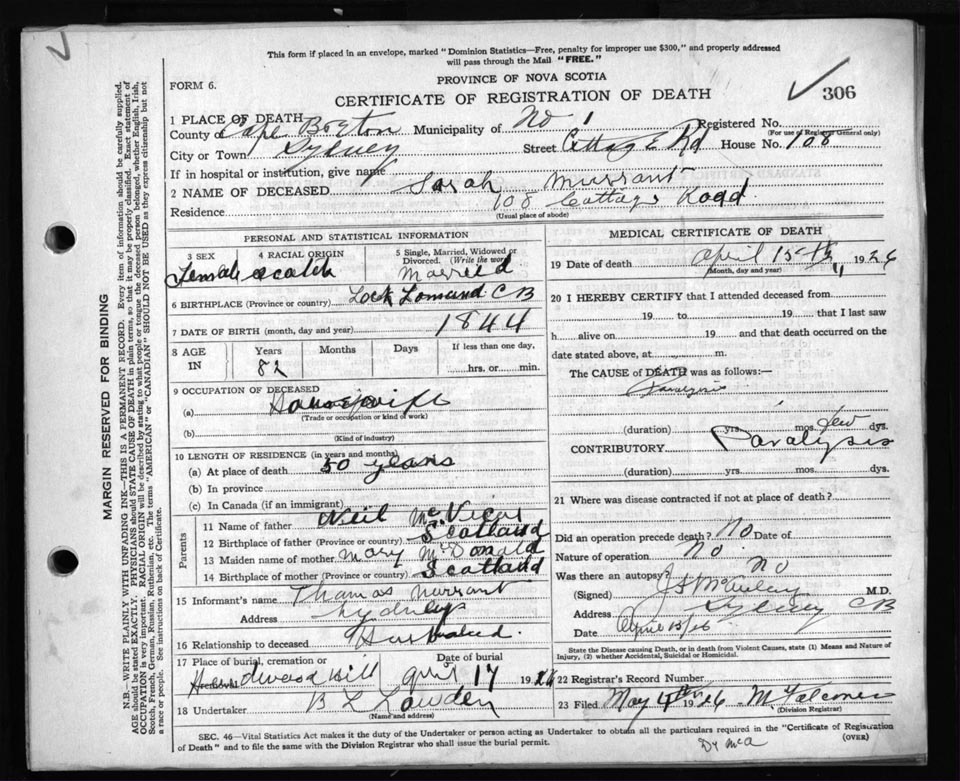 This form if placed in an envelope, marked "Dominion Statistics—Free, penalty for improper use $300," and properly addressed
will pass through the Mail "FREE."
PROVINCE OF NOVA SCOTIA
FORM 6.
CERTIFICATE OF REGISTRATION OF DEATH
306
1 PLACE OF DEATH
County of Cape Breton Municipality of No 1 Registered No.
(For use of Registrar General only)
City or Town Sydney Street Cottage Rd House No. 108
If in hospital or institution, give name
2 NAME OF DECEASED Sarah Murrant
Residence 108 Cottage Road
(Usual place of abode)
PERSONAL AND STATISTICAL INFORMATION
3 SEX 4 RACIAL ORIGIN 5 Single, Married, Widowed or Divorced. (Write the word)
Female Scotch Married
6 BIRTHPLACE (Province or country) Lock Lomand CB
7 DATE OF BIRTH (month, day and year) 1844
8 AGE IN Years Months Days If less than one day,
82 hrs. or min.
9 OCCUPATION OF DECEASED
(a) Housewife
(Trade or occupation or kind of work)
(b)
(Kind of industry)
10 LENGTH OF RESIDENCE (in years and months)
(a) At place of death 50 years
(b) In province
(c) In Canada (if an immigrant)
Parents
11 Name of father Neil McVicar
12 Birthplace of father (Province or country) Scotland
13 Maiden name of mother Mary McDonald
14 Birthplace of mother (Province or country) Scotland
15 Informant's name Thomas Murrant
Address Sydney
16 Relationship to deceased Husband.
17 Place of burial, cremation or Date of burial
Hardwood Hill April 17 1926
18 Undertaker B L Lowden
(Name and address)
MEDICAL CERTIFICATE OF DEATH
19 Date of death April 15th 1926
(Month, day and year)
20 I HEREBY CERTIFY that I attended deceased from
19 to 19 that I last saw
h alive on 19 and that death occurred on the
date stated above, at m.
The CAUSE of DEATH was as follows:—
(duration) yrs. mos. few dys.
CONTRIBUTORY Paralysis
(duration) yrs. mos. dys.
21 Where was disease contracted if not at place of death?
Did an operation precede death? No Date of
Nature of operation No
Was there an autopsy? No
(Signed) M.D.
Address Sydney CB
Date April 15/26
State the Disease causing Death, or in death from Violent Causes, state (1) Means and Nature of
Injury, (2) whether Accidental, Suicidal or Homicidal.
22 Registrar's Record Number
23 Filed May 4th 1926 M Falconer
(Division Registrar)
SEC. 46—Vital Statistics Act makes it the duty of the Undertaker or person acting as Undertaker to obtain all the particulars required in the "Certificate of Registration
of Death" and to file the same with the Division Registrar who shall issue the burial permit.
(OVER)
Dy McA
MARGIN RESERVED FOR BINDING
N.B.—WRITE PLAINLY WITH UNFADING INK—THIS IS A PERMANENT RECORD. Every item of information should be carefully supplied.
AGE should be stated EXACTLY. PHYSICIANS should STATE CAUSE OF DEATH in plain terms, so that it may be properly classified. Exact statement of
OCCUPATION is very important. RACIAL ORIGIN will be described by stating to what people or tongue the deceased person belonged, whether English, Irish,
Scotch, French, German, Russian, Ruthenian, etc. The terms "AMERICAN" or "CANADIAN" SHOULD NOT BE USED as they express citizenship but not
a race or people. See instructions on back of Certificate.